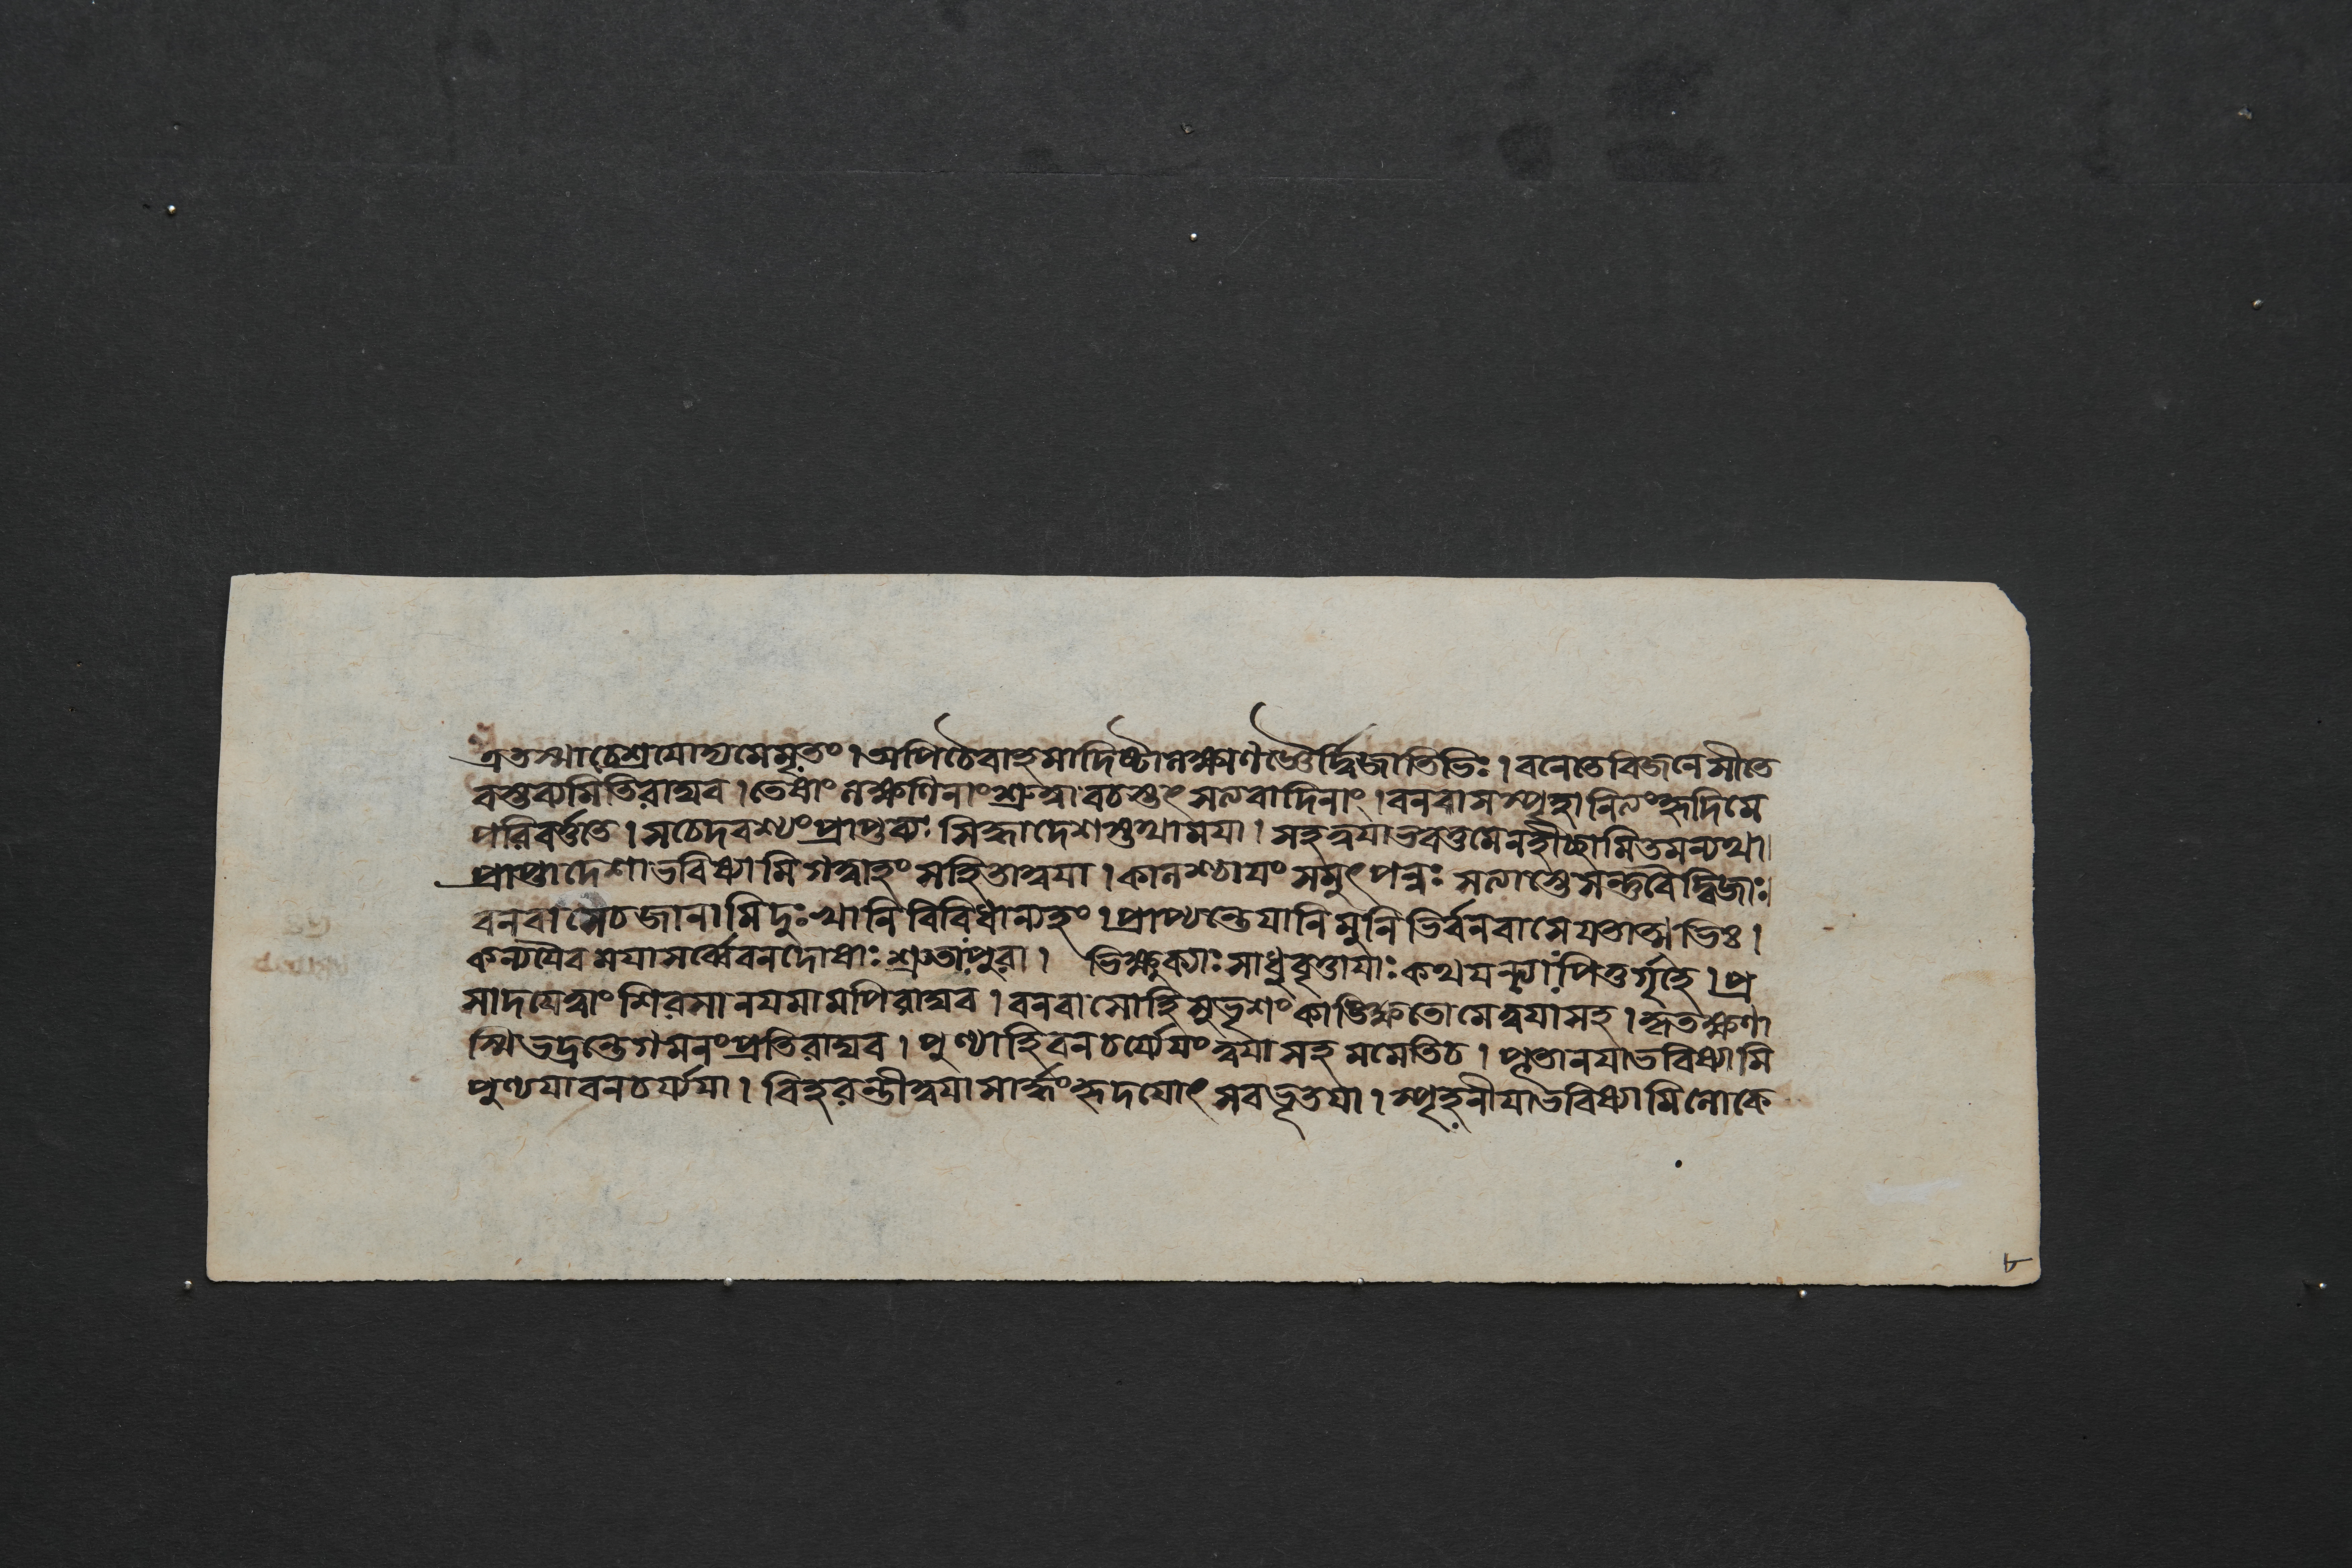 এতস্মাচ্চেশ্রয়োহ্যমেমৃতং। অপিচৈবাহমাদিষ্টালক্ষণজ্ঞৈর্দ্বিজাতিভিঃ। বনেতেবিজনেসীতে
বস্তব্যমিতিরাঘব। তেষাং লক্ষণিনাং শ্রুত্বাবচস্তৎ সত্যবাদিনাং। বনবাসস্পৃহানিত্যংহৃদিমে
পরিবর্ত্ততে। সচেদবশ্যংপ্রাপ্তব্যঃ সিদ্ধাদেশস্তথাময়া। সহত্বয়াভবতুমেনহীচ্ছামিতমন্যথা।
প্রাপ্তাদেশাভবিষ্যামিগত্বাহংসহিতাত্বয়া। কালশ্চায়ং সমুৎপন্নঃ সত্যাস্তেসন্তুবৈদ্বিজাঃ।
বনবাসেচজানামিদুঃখানিবিবিধান্যহং। প্রাপ্যন্তেযানিমুনিভির্বনবাসেযতাত্মভিঃ।
কন্যয়ৈবময়াসর্ব্বেবনদোষাঃ শ্রুতাঃপুরা। ভিক্ষুক্যাঃ সাধুবৃত্তায়াঃ কথয়ন্ত্যাঃপিতুর্গৃহে। প্র
সাদয়েত্বাংশিরসানয়মামপিরাঘব। বনবাসোহিসুভৃশংকাঙ্ক্ষিতোমেত্বয়াসহ। কৃতক্ষণা
স্মিভদ্রন্তেগমনংপ্রতিরাঘব। পুণ্যাহিবনচর্য্যেয়ংত্বয়াসহমমেতিচ। পূতানয়াভবিষ্যামি
পুণ্যয়াবনচর্য্যয়া। বিহরন্তীত্বয়াসার্দ্ধংহৃদয়োৎসবভূতয়া। স্পৃহনীয়াভবিষ্যামিলোকে